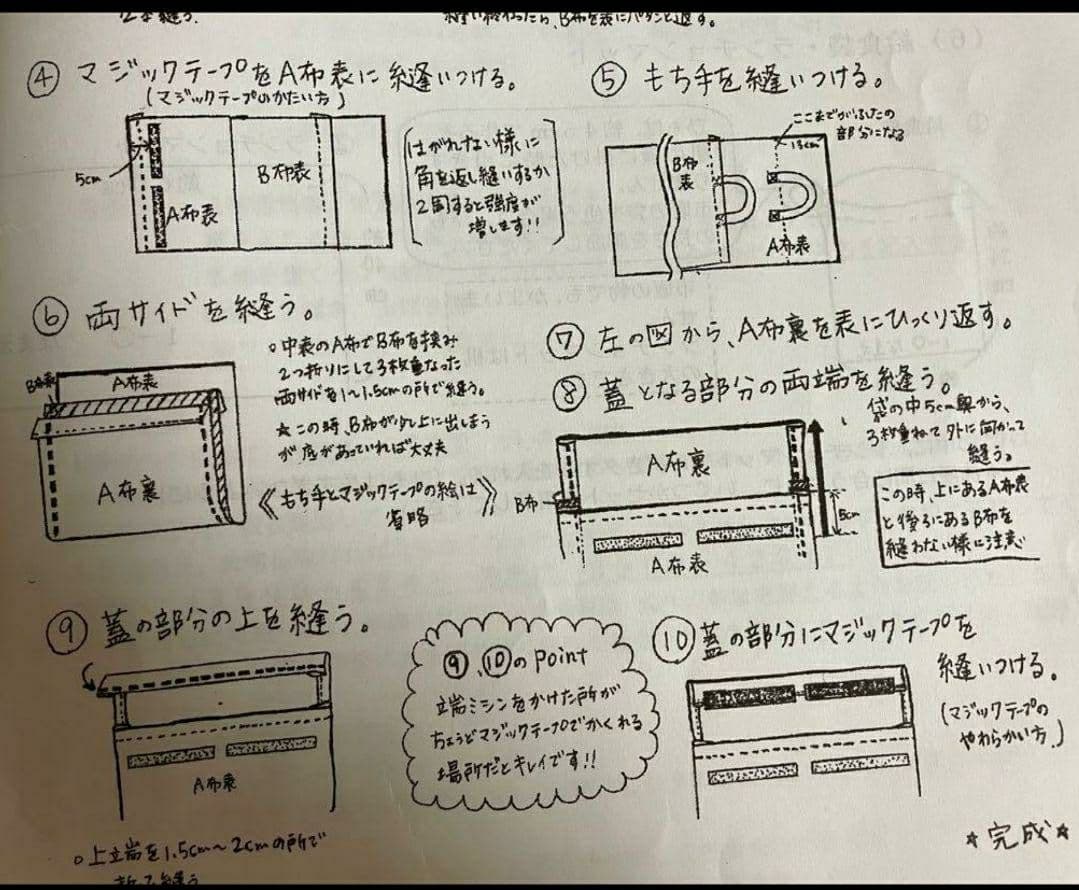 縫い終わったら、B布を表にパタンと返す。
④ マジックテープをA布表に縫いつける。
(マジックテープのかたい方)
5cm
B布表
A布表
はがれない様に
角を返し縫いするか
2周すると強度が
増します!!
⑤ もち手を縫いつける。
ここまでがふたの
部分になる
13cm
B布表
A布表
⑥ 両サイドを縫う。
A布表
A布裏
○中表のA布でB布を挟み
2つ折りにして3枚重なった
両サイドを1~1.5cmの所で縫う。
☆この時、B布が少し上に出しまう
が底があっていれば大丈夫
《もち手とマジックテープの絵は
省略》
⑦ 左の図から、A布裏を表にひっくり返す。
⑧ 蓋となる部分の両端を縫う。
袋の中5cm奥から、
3枚重ねて外に向かって
縫う。
A布裏
B布
5cm
A布表
この時、上にあるA布表
と後ろにあるB布を
縫わない様に注意
⑨ 蓋の部分の上を縫う。
A布表
○上端を1.5cm~2cmの所で
折って縫う
⑨、⑩のPoint
端ミシンをかけた所が
ちょうどマジックテープでかくれる
場所だとキレイです!!
⑩ 蓋の部分にマジックテープを
縫いつける。
(マジックテープの
やわらかい方)
☆完成☆